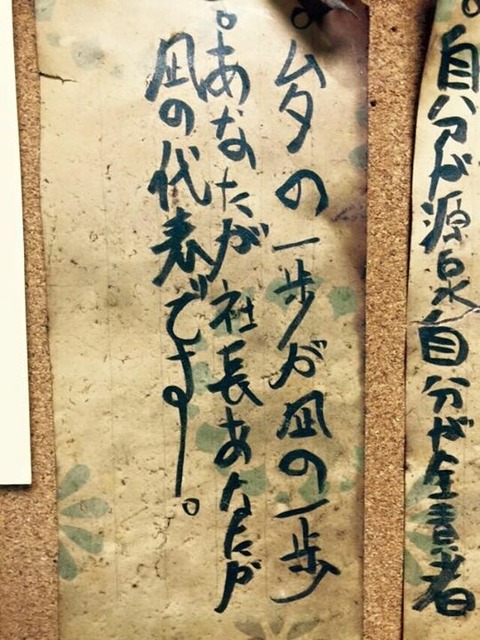 。自分が源泉自分が
。ムタの一歩が凪の一歩
。あなたが社長あなたが
凪の代表です。